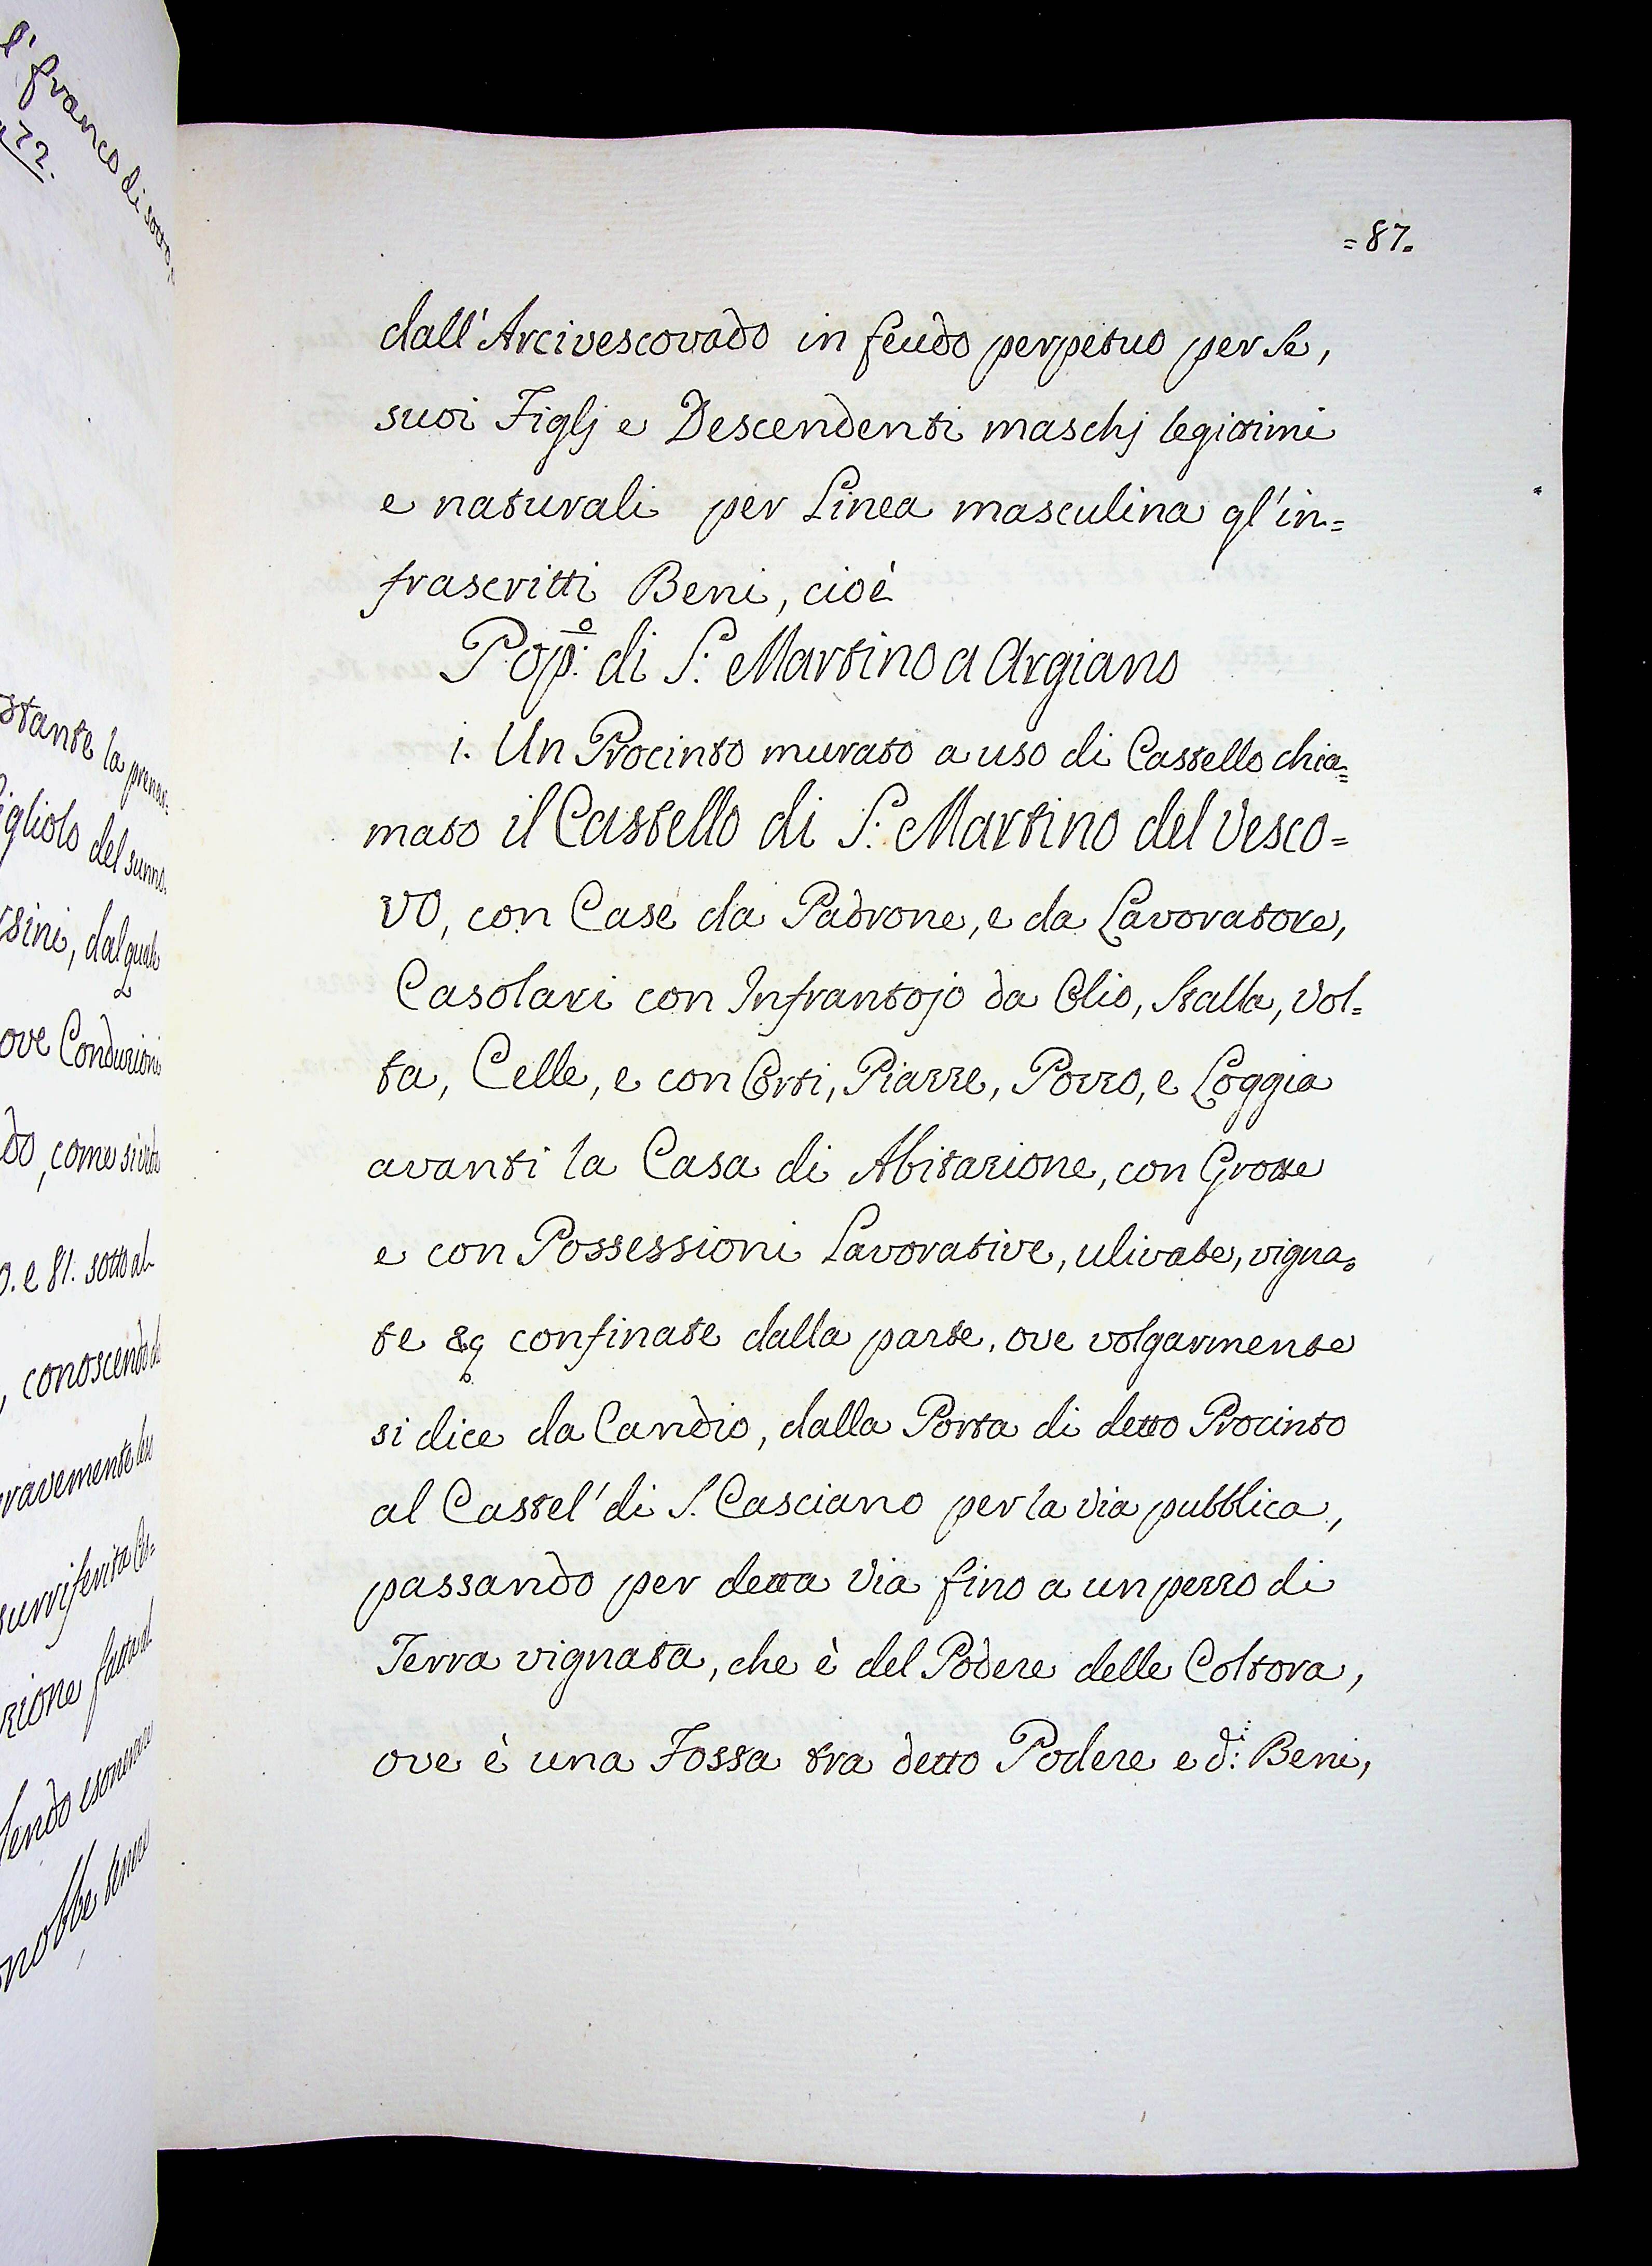 l' franco di sotto
72.
stante la prenar
igliolo del sunno.
sini, dal quale
ove Conduzioni
do, come si vede
0. e 81. sotto al
, conoscendo
ravemente
surriferita
zione fatta al
lendo esonerare
nobbe tenere
=87.
dall'Arcivescovado in feudo perpetuo per se,
suoi Figlj e Descendenti maschj legittimi
e naturali per Linea masculina gl'in=
frascritti Beni, cioè
Pop:º di S: Martino a Argiano
1. Un Procinto murato a uso di Castello chia=
mato il Castello di S: Martino del Vesco=
vo, con Case da Padrone, e da Lavoratore,
Casolari con Infrantojo da Olio, Stalla, Vol=
ta, Celle, e con Corti, Piazze, Pozzo, e Loggia
avanti la Casa di Abitazione, con Grotte
e con Possessioni Lavorative, ulivate, vigna=
te &c confinate dalla parte, ove volgarmente
si dice da Candio, dalla Porta di detto Procinto
al Castel' di S. Casciano per la Via pubblica,
passando per detta Via fino a un pezzo di
Terra vignata, che è del Podere delle Coltora,
ove è una Fossa tra detto Podere e d:i Beni,